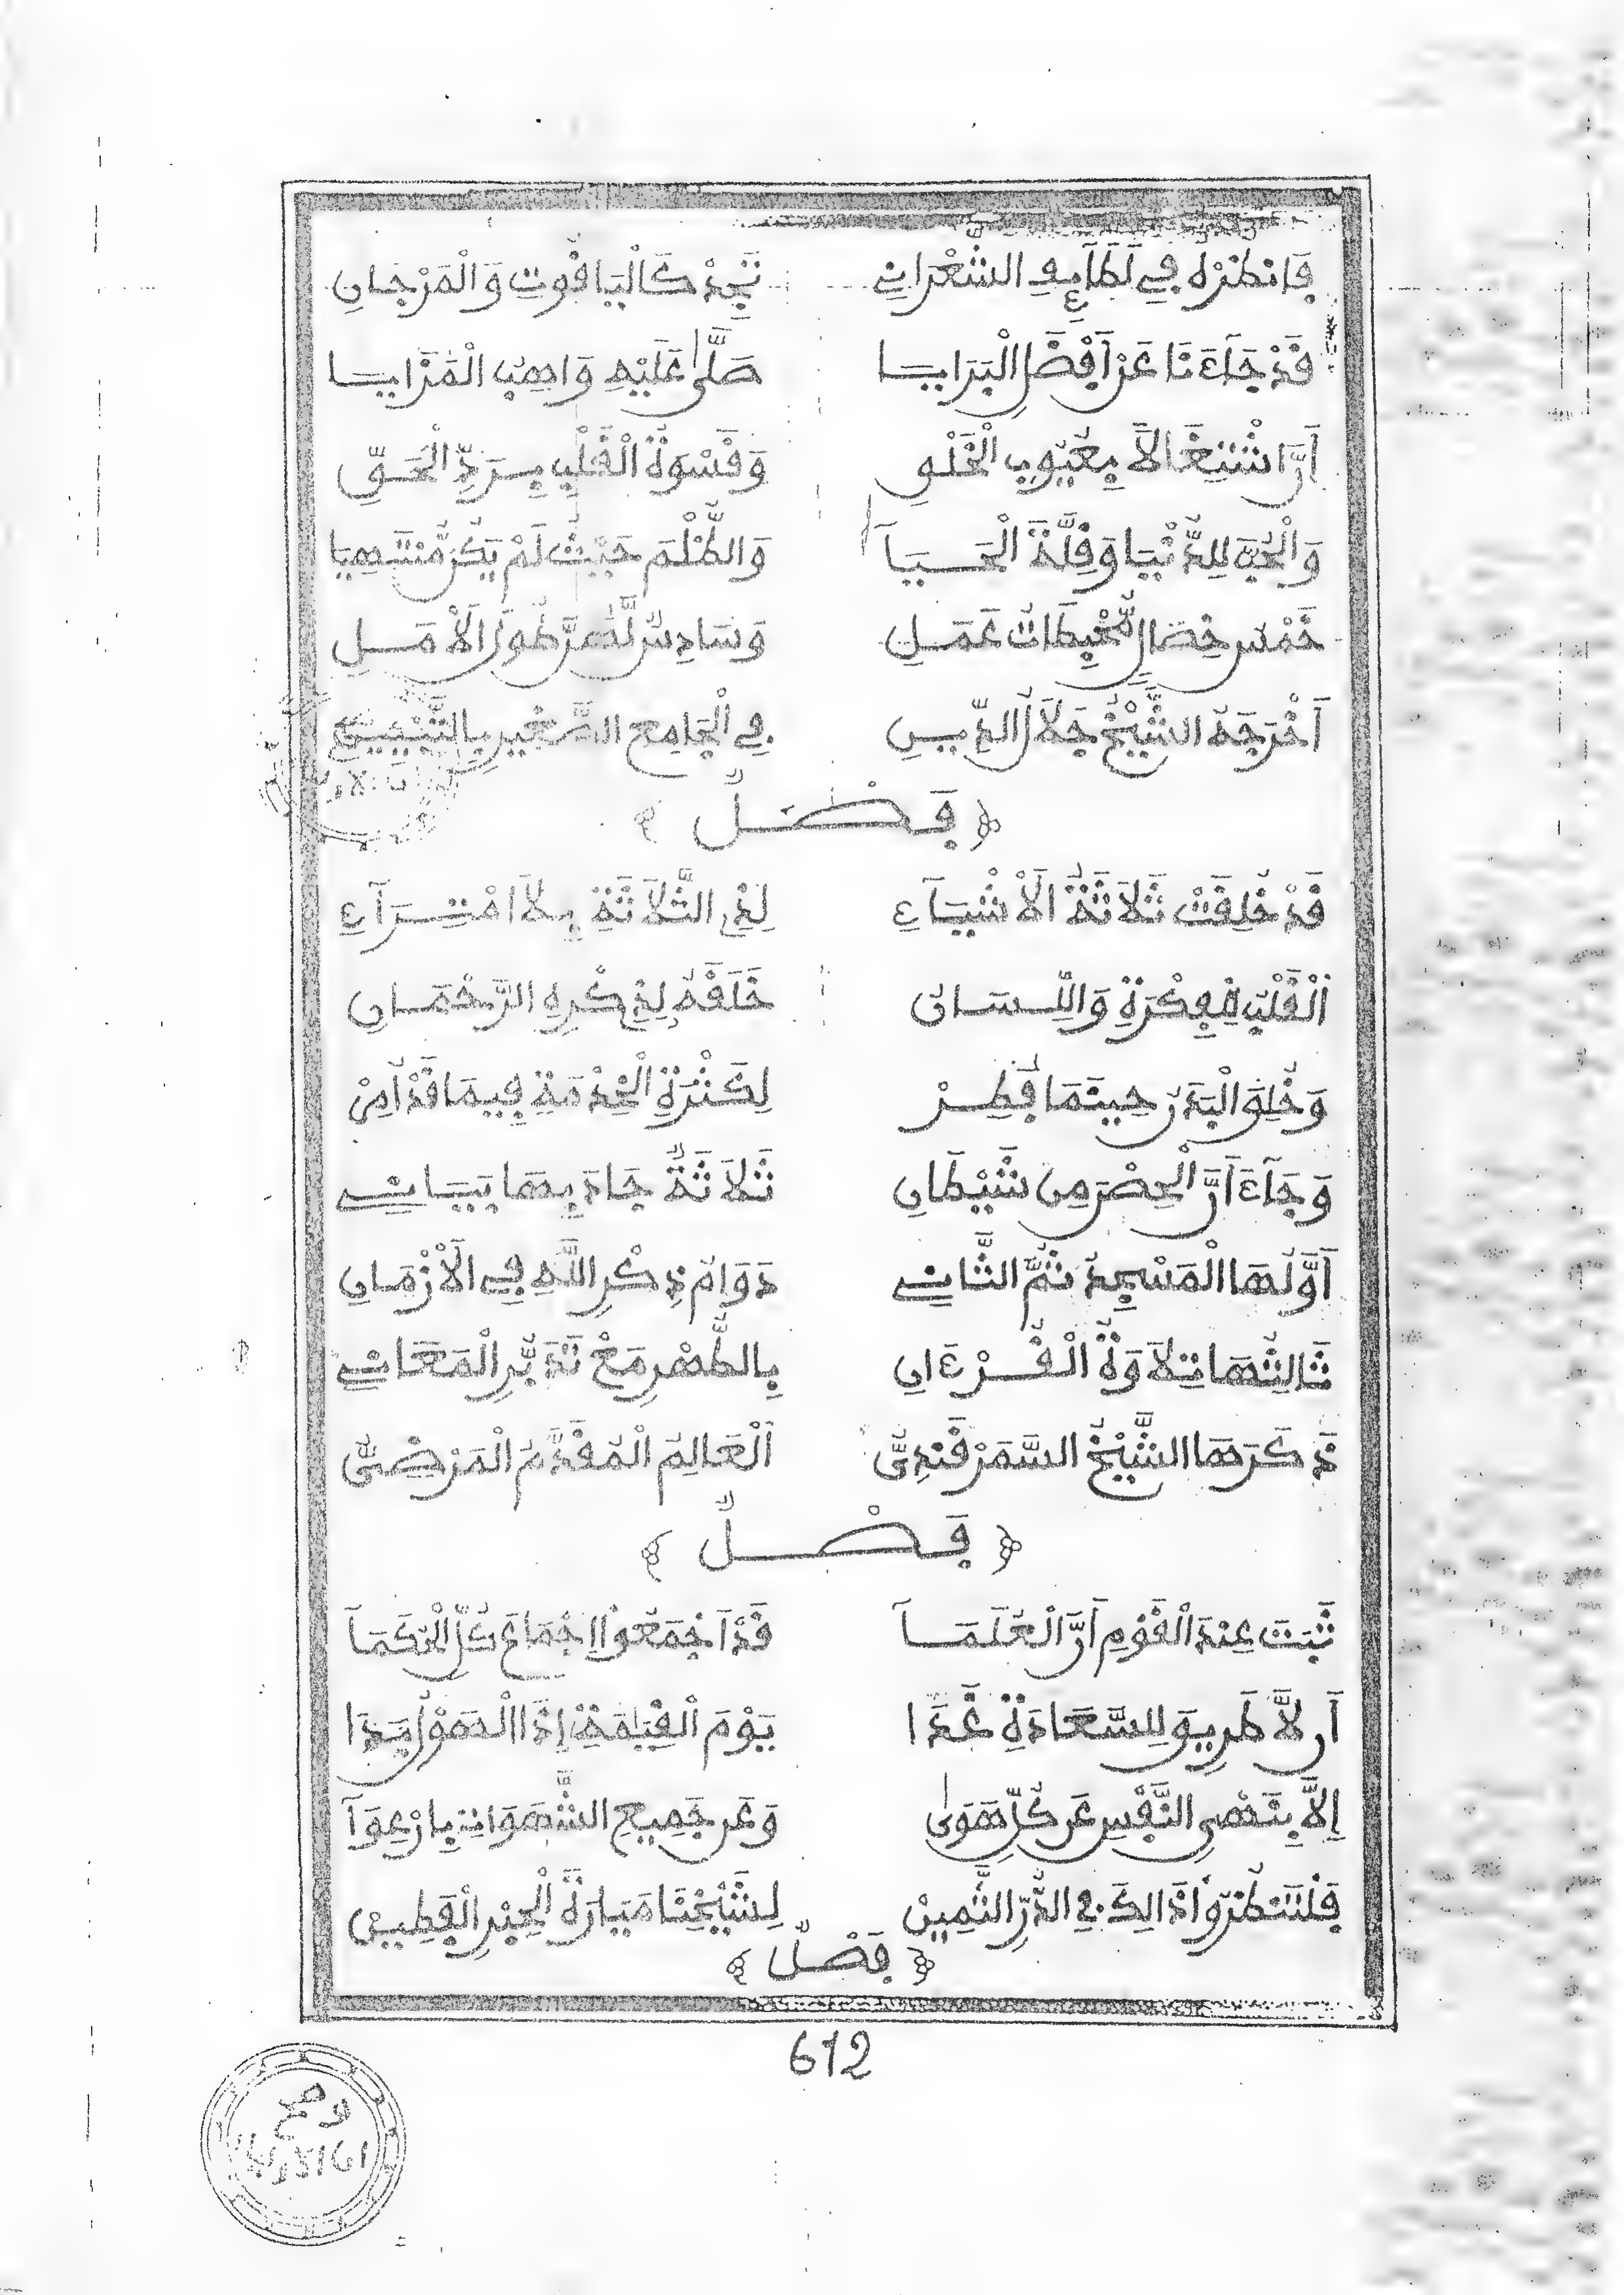 فَانظُرْهُ فِي لَطَآئِفِ الشَّعْرَانِي نَجِدْ كَالْيَاقُوتِ وَالْمَرْجَانِ
قَدْ جَآءَنَا عَنْ أَفْضَلِ الْبَرَايَا صَلَّى عَلَيْهِ وَاهِبُ الْمَزَايَا
أَنَّ اشْتِغَالاً بِعُيُوبِ الْخَلْقِ وَقَسْوَةُ الْقَلْبِ بِرَدِّ الْحَقِّ
وَالْحُبَّ لِلدُّنْيَا وَقِلَّةَ الْحَيَآ وَالظُّلْمَ حَيْثُ لَمْ يَكُن مُّنتَهِيَا
خَمْسُ خِصَالٍ مُّحْبِطَاتُ عَمَلِ وَسَادِسٌ لَّهُنَّ طُولُ الْأَمَلِ
أَخْرَجَهُ الشَّيْخُ جَلاَلُ الدِّينِ فِي الْجَامِعِ الصَّغِيرِ بِالتَّبْيِينِ
﴿ فَصْلٌ ﴾
قَدْ خُلِقَتْ ثَلاَثَةُ الْأَشْيَآءِ لِذِي الثَّلاَثَةِ بِلاَ امْتِرَآءِ
اَلْقَلْبُ لِلْفِكْرَةِ وَاللِّسَانُ خَلَقَهُ لِذِكْرِهِ الرَّحْمَانِ
وَخُلِقَ الْبَدَنُ حِينَمَا فُطِرْ لِكَثْرَةِ الْخِدْمَةِ فِيمَا قَدْ أُمِرْ
وَجَآءَ أَنَّ الْحِصْنَ مِن شَيْطَانِ ثَلاَثَةٌ جَاءَ بِهَا بَيَانِي
أَوَّلُهَا الْمَسْجِدُ ثُمَّ الثَّانِي دَوَامُ ذِكْرِ اللَّهِ فِي الْأَزْمَانِ
ثَالِثُهَا تِلاَوَةُ الْقُرْءَانِ بِالطُّهْرِ مَعْ تَدَبُّرِ الْمَعَانِي
ذَكَرَهَا الشَّيْخُ السَّمَرْقَنْدِيُّ اَلْعَالِمُ الْمُقَدَّمُ الْمَرْضِيُّ
﴿ فَصْلٌ ﴾
ثَبَتَ عِنْدَ الْقَوْمِ أَنَّ الْعُلَمَآ قَدْ أَجْمَعُوا إِجْمَاعَ كُلِّ الْحُكَمَآ
أَن لاَّ طَرِيقَ لِلسَّعَادَةِ غَدَا يَوْمَ الْقِيَٰمَةِ إِذَا الْهَوْلُ بَدَا
إِلاَّ بِنَهْيِ النَّفْسِ عَن كُلِّ هَوَى وَعَن جَمِيعِ الشَّهَوَاتِ بِارْعِوَآ
فَلْتَنظُرُوا ذَالِكَ فِي الدُّرِّ الثَّمِينْ لِشَيْخِنَا مَيَّارَةَ الْحِبْرِ الْفَطِينْ
﴿ فَصْلٌ ﴾
612